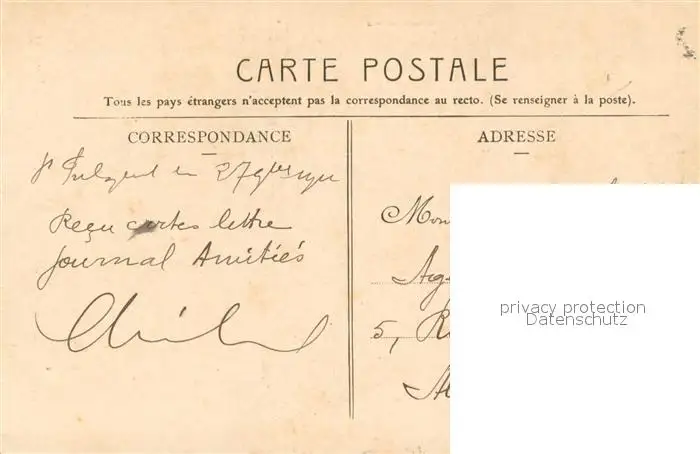 CARTE POSTALE
Tous les pays étrangers n'acceptent pas la correspondance au recto. (Se renseigner à la poste).
CORRESPONDANCE
St Fulgent 27
Reçu cartes lettre
journal Amitiés
ADRESSE
Mon
Ag
5, R
privacy protection
Datenschutz